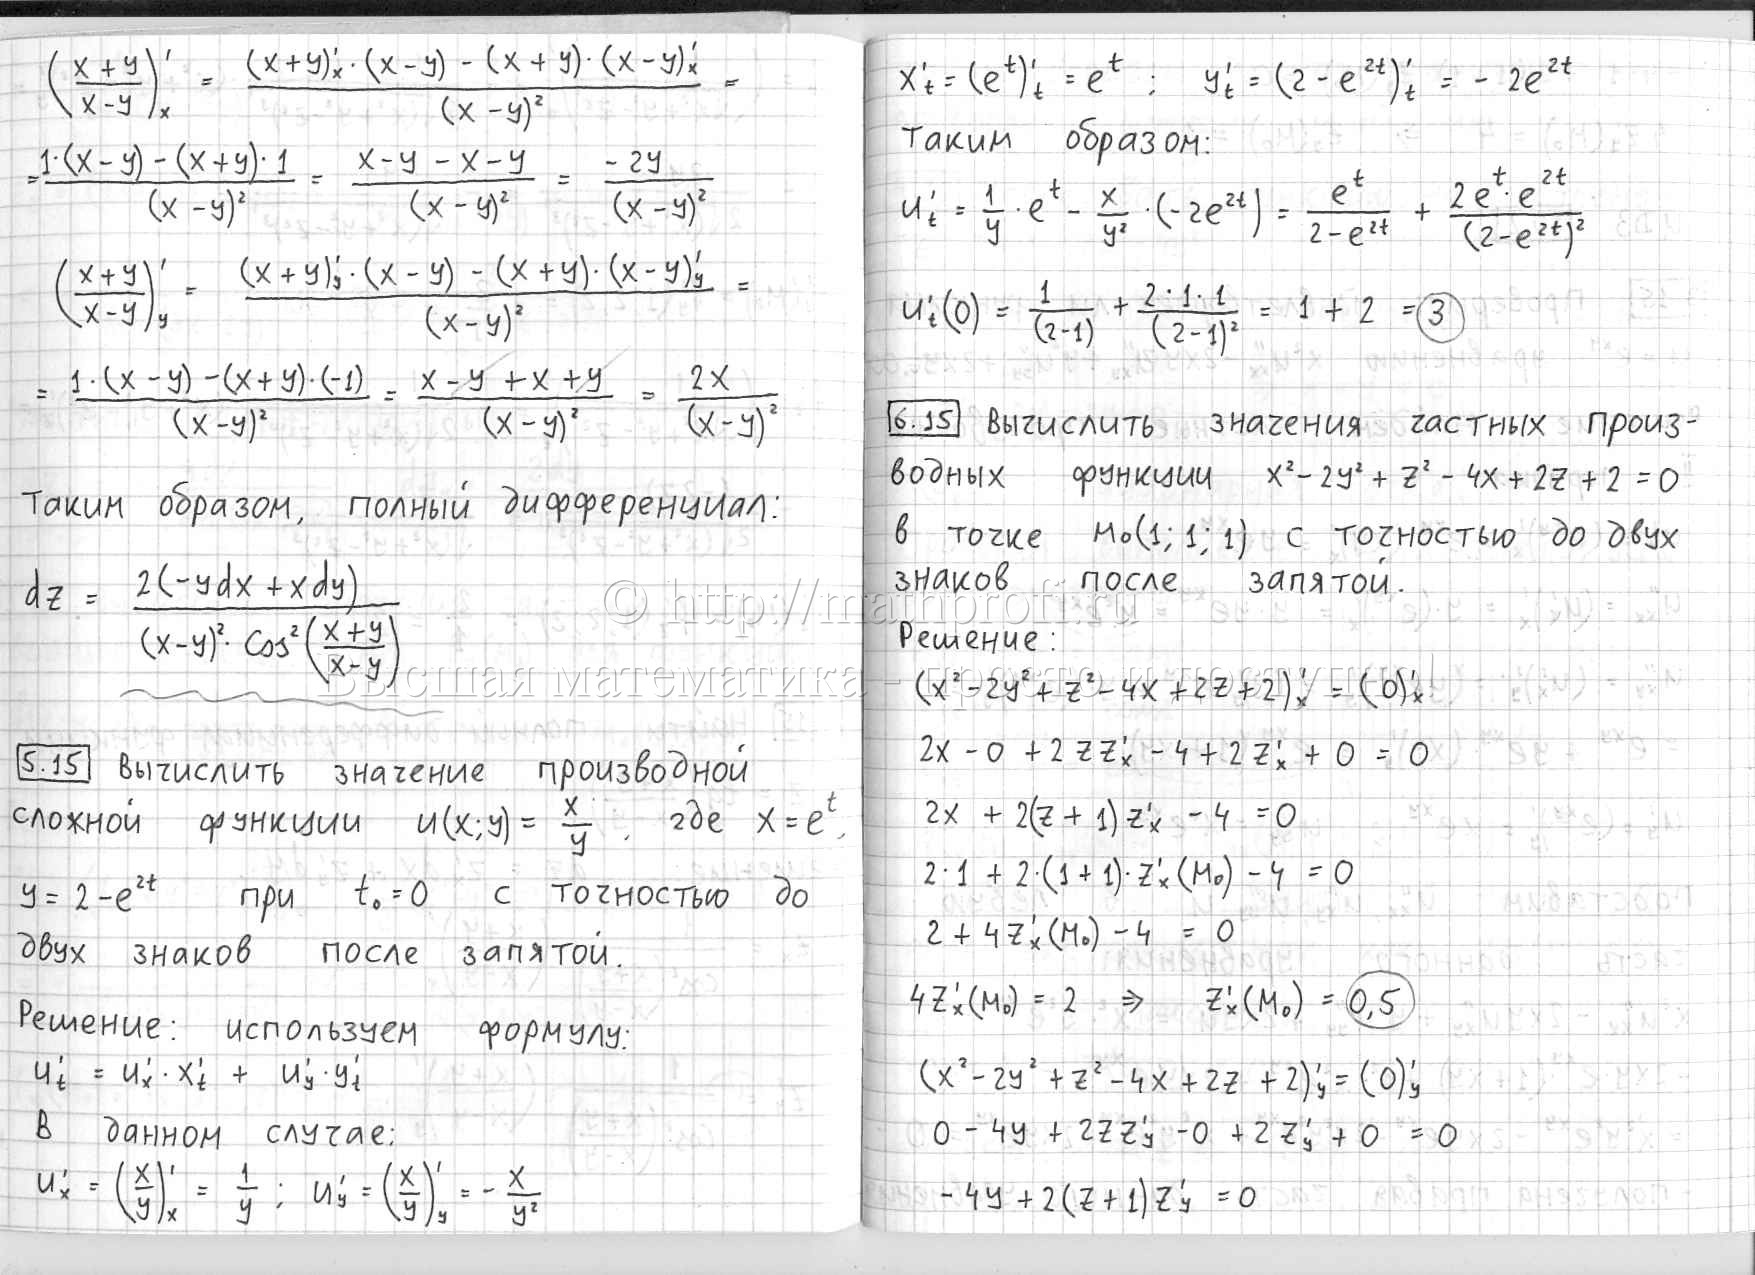 ((x+y)/(x-y))'ₓ = ((x+y)'ₓ·(x-y) - (x+y)·(x-y)'ₓ)/(x-y)² =
= (1·(x-y) - (x+y)·1)/(x-y)² = (x-y-x-y)/(x-y)² = -2y/(x-y)²
((x+y)/(x-y))'_y = ((x+y)'_y·(x-y) - (x+y)·(x-y)'_y)/(x-y)² =
= (1·(x-y) - (x+y)·(-1))/(x-y)² = (x-y+x+y)/(x-y)² = 2x/(x-y)²
Таким образом, полный дифференциал:
dz = 2(-ydx + xdy)/((x-y)²·cos²((x+y)/(x-y)))
5.15 Вычислить значение производной
сложной функции u(x;y) = x/y, где x = eᵗ,
y = 2-e²ᵗ при t₀ = 0 с точностью до
двух знаков после запятой.
Решение: используем формулу:
u'ₜ = u'ₓ·x'ₜ + u'_y·y'ₜ
В данном случае:
u'ₓ = (x/y)'ₓ = 1/y; u'_y = (x/y)'_y = -x/y²
x'ₜ = (eᵗ)'ₜ = eᵗ; y'ₜ = (2-e²ᵗ)'ₜ = -2e²ᵗ
Таким образом:
u'ₜ = 1/y·eᵗ - x/y²·(-2e²ᵗ) = eᵗ/(2-e²ᵗ) + 2eᵗ·e²ᵗ/(2-e²ᵗ)²
u'ₜ(0) = 1/(2-1) + 2·1·1/(2-1)² = 1 + 2 = 3
6.15 Вычислить значения частных произ-
водных функции x²-2y²+z²-4x+2z+2=0
в точке M₀(1; 1; 1) с точностью до двух
знаков после запятой.
Решение:
(x²-2y²+z²-4x+2z+2)'ₓ = (0)'ₓ
2x - 0 + 2zz'ₓ - 4 + 2z'ₓ + 0 = 0
2x + 2(z+1)z'ₓ - 4 = 0
2·1 + 2·(1+1)·z'ₓ(M₀) - 4 = 0
2 + 4z'ₓ(M₀) - 4 = 0
4z'ₓ(M₀) = 2 ⇒ z'ₓ(M₀) = 0,5
(x²-2y²+z²-4x+2z+2)'_y = (0)'_y
0 - 4y + 2zz'_y - 0 + 2z'_y + 0 = 0
-4y + 2(z+1)z'_y = 0
© http://mathprofi.ru
Высшая математика - просто и доступно!